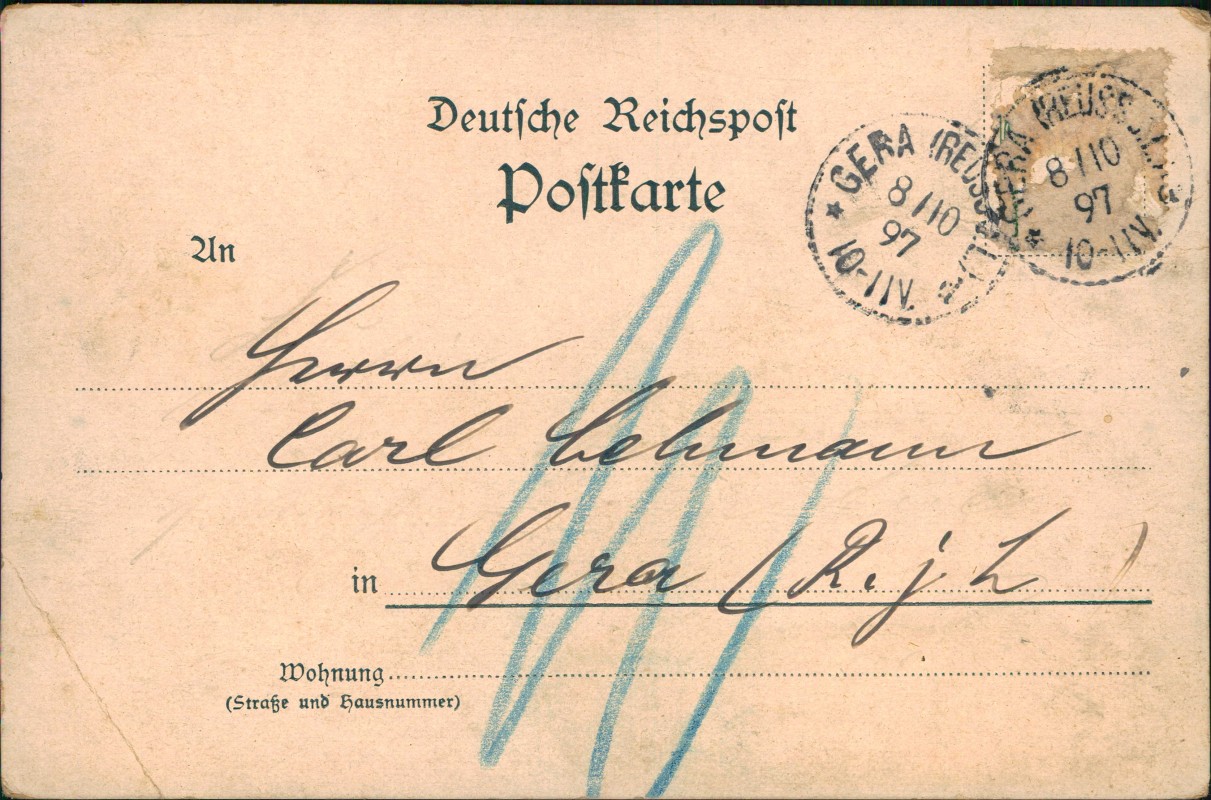 Deutsche Reichspost
Postkarte
GERA (REUSS J.L.)
8/10
97
10-11V.
GERA (REUSS J.L.)
8/10
97
10-11V.
An
Herrn
Carl Lehmann
in Gera (R. j L)
Wohnung
(Straße und Hausnummer)